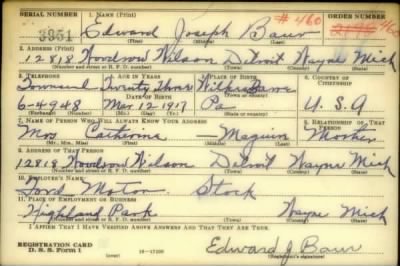 SERIAL NUMBER 1. Name (Print) ORDER NUMBER
3951 Edward Joseph Baur # 460
(First) (Middle) (Last)
2. Address (Print)
12818 Woodrow Wilson Detroit Wayne Mich
(Number and street or R. F. D. number) (Town) (County) (State)
3. Telephone 4. Age in Years 5. Place of Birth 6. Country of Citizenship
Townsend Twenty Three Wilkesbarre
Date of Birth
6-4948 Mar. 12 1917 Pa U.S.A
(Exchange) (Number) (Mo.) (Day) (Yr.) (State or country)
7. Name of Person Who Will Always Know Your Address 8. Relationship of That Person
Mrs Catherine — Maguin Mother
(Mr., Mrs., Miss) (First) (Middle) (Last)
9. Address of That Person
12818 Woodrow Wilson Detroit Wayne Mich
(Number and street or R. F. D. number) (Town) (County) (State)
10. Employer's Name
Ford Motor Stock
11. Place of Employment or Business
Highland Park Wayne Mich
(Number and street or R. F. D. number) (Town) (County) (State)
I Affirm That I Have Verified Above Answers and That They Are True.
REGISTRATION CARD
D. S. S. Form 1 Edward J Baur